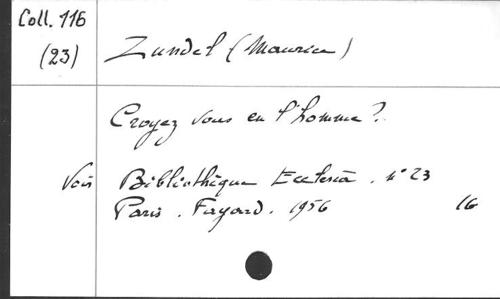 Coll. 116
(23)
Zundel (Maurice)
Croyez vous en l'homme ?
Voir Bibliothèque Ecclesia. n° 23
Paris. Fayard. 1956 16